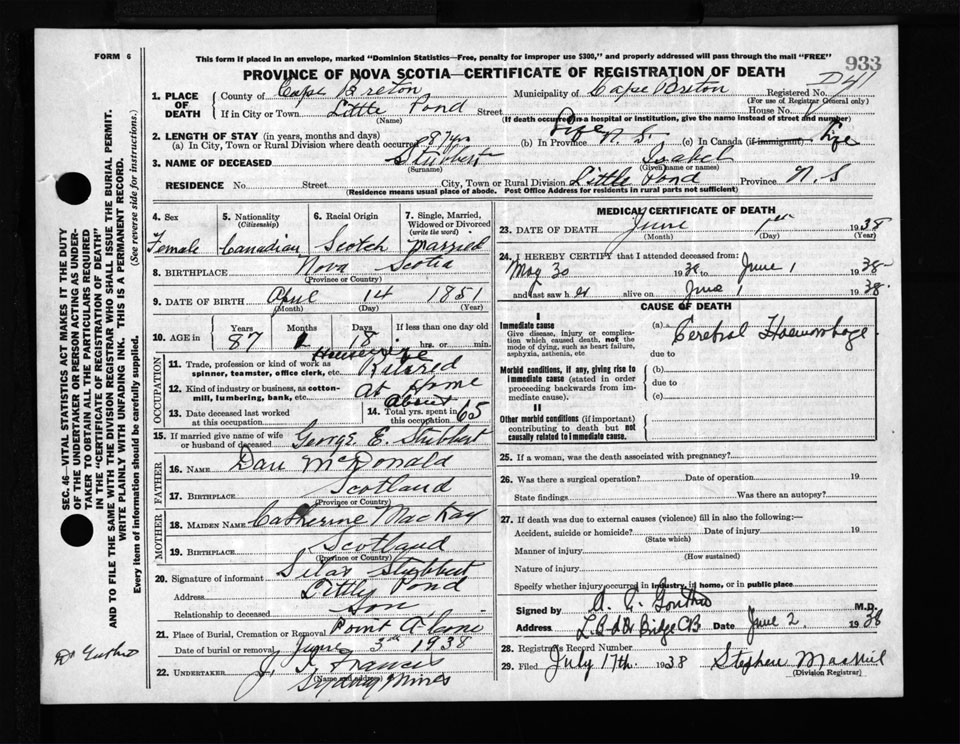 FORM 6
This form if placed in an envelope, marked "Dominion Statistics—Free, penalty for improper use $300," and properly addressed will pass through the mail "FREE"
933
PROVINCE OF NOVA SCOTIA—CERTIFICATE OF REGISTRATION OF DEATH
1. PLACE OF DEATH
County of Cape Breton Municipality of Cape Breton Registered No.
(For use of Registrar General only)
If in City or Town Little Pond Street House No.
(Name) (If death occurred in a hospital or institution, give the name instead of street and number)
2. LENGTH OF STAY (in years, months and days)
(a) In City, Town or Rural Division where death occurred 87 yrs (b) In Province Life N. S (c) In Canada (if immigrant) Life
3. NAME OF DECEASED Stubbert Isabel
(Surname) (Given name or names)
RESIDENCE No. Street City, Town or Rural Division Little Pond Province N. S
(Residence means usual place of abode. Post Office Address for residents in rural parts not sufficient)
4. Sex Female
5. Nationality (Citizenship) Canadian
6. Racial Origin Scotch
7. Single, Married, Widowed or Divorced (write the word) Married
8. BIRTHPLACE Nova Scotia
(Province or Country)
9. DATE OF BIRTH April 14 1851
(Month) (Day) (Year)
10. AGE Years 87 Months 1 Days 18 If less than one day old hrs. or min.
OCCUPATION
11. Trade, profession or kind of work as spinner, teamster, office clerk, etc. Housewife Retired
12. Kind of industry or business, as cotton-mill, lumbering, bank, etc. At Home
13. Date deceased last worked at this occupation
14. Total yrs. spent in this occupation About 65
15. If married give name of wife or husband of deceased George E. Stubbert
FATHER
16. NAME Dan McDonald
17. BIRTHPLACE Scotland
(Province or Country)
MOTHER
18. MAIDEN NAME Catherine MacKay
19. BIRTHPLACE Scotland
(Province or Country)
20. Signature of informant Silas Stubbert
Address Little Pond
Relationship to deceased Son
21. Place of Burial, Cremation or Removal Point
Date of burial or removal June 3rd 1938
22. UNDERTAKER J. Francis
(Name and address)
Sydney Mines
MEDICAL CERTIFICATE OF DEATH
23. DATE OF DEATH June 1st 1938
(Month) (Day) (Year)
24. I HEREBY CERTIFY that I attended deceased from:
May 30 1938 to June 1 1938
and last saw her alive on June 1 1938.
CAUSE OF DEATH
I
Immediate cause
Give disease, injury or complication which caused death, not the mode of dying, such as heart failure, asphyxia, asthenia, etc
(a) Cerebral Haemorrhage
due to
Morbid conditions, if any, giving rise to immediate cause (stated in order proceeding backwards from immediate cause).
(b)
due to
(c)
II
Other morbid conditions (if important) contributing to death but not causally related to immediate cause.
25. If a woman, was the death associated with pregnancy?
26. Was there a surgical operation? Date of operation 19
State findings Was there an autopsy?
27. If death was due to external causes (violence) fill in also the following:—
Accident, suicide or homicide? Date of injury 19
(State which)
Manner of injury
(How sustained)
Nature of injury
Specify whether injury occurred in industry, in home, or in public place
Signed by M.D.
Address Date June 2 1938
28. Registrars Record Number
29. Filed July 17th. 1938 Stephen MacNeil
(Division Registrar)
SEC. 46—VITAL STATISTICS ACT MAKES IT THE DUTY
OF THE UNDERTAKER OR PERSON ACTING AS UNDER-
TAKER TO OBTAIN ALL THE PARTICULARS REQUIRED
IN THE "CERTIFICATE OF REGISTRATION OF DEATH"
AND TO FILE THE SAME WITH THE DIVISION REGISTRAR WHO SHALL ISSUE THE BURIAL PERMIT.
WRITE PLAINLY WITH UNFADING INK. THIS IS A PERMANENT RECORD.
Every item of information should be carefully supplied. (See reverse side for instructions.)